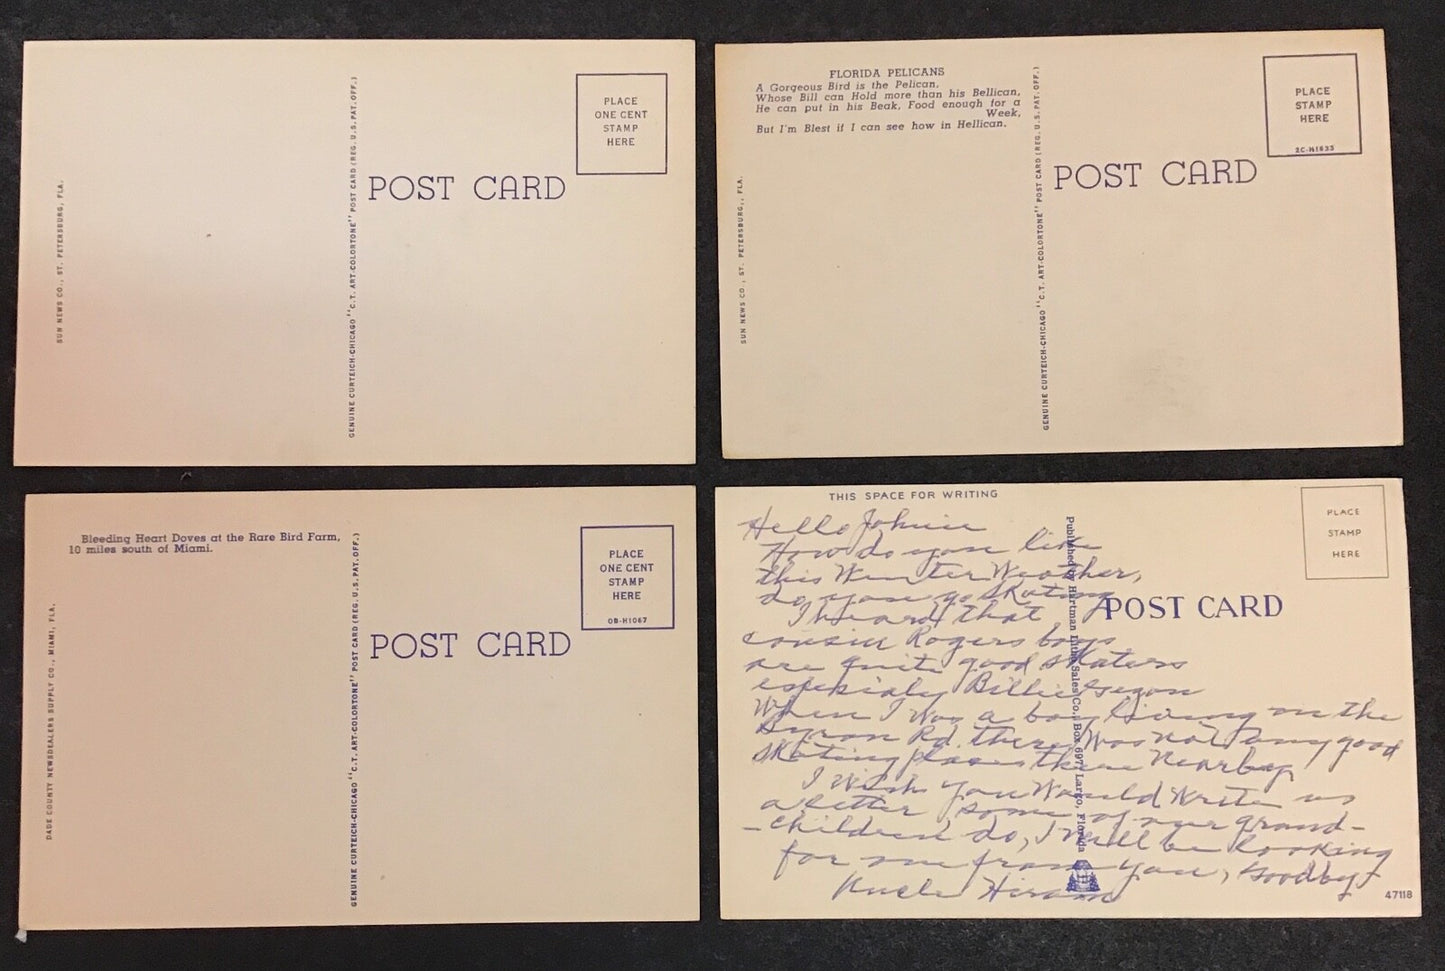 PLACE
ONE CENT
STAMP
HERE
POST CARD
SUN NEWS CO., ST. PETERSBURG, FLA.
GENUINE CURTEICH-CHICAGO "C.T. ART-COLORTONE" POST CARD (REG. U.S. PAT. OFF.)
FLORIDA PELICANS
A Gorgeous Bird is the Pelican,
Whose Bill can Hold more than his Bellican,
He can put in his Beak, Food enough for a
Week,
But I'm Blest if I can see how in Hellican.
PLACE
STAMP
HERE
2C-H1633
POST CARD
SUN NEWS CO., ST. PETERSBURG,, FLA.
GENUINE CURTEICH-CHICAGO "C.T. ART-COLORTONE" POST CARD (REG. U.S. PAT. OFF.)
Bleeding Heart Doves at the Rare Bird Farm,
10 miles south of Miami.
PLACE
ONE CENT
STAMP
HERE
0B-H1067
POST CARD
DADE COUNTY NEWSDEALERS SUPPLY CO., MIAMI, FLA.
GENUINE CURTEICH-CHICAGO "C.T. ART-COLORTONE" POST CARD (REG. U.S. PAT. OFF.)
THIS SPACE FOR WRITING
PLACE
STAMP
HERE
POST CARD
Published by Hartman Litho Sales Co., Box 697, Largo, Florida
Hello Johnie
How do you like
this Winter Weather,
do you go Skating
I heard that
cousin Rogers boys
are quite good skaters
especialy Billie
When I Was a boy living on the
Byron Rd. there Was not any good
skating places there Nearby
I Wish you Would Write us
a letter some of our grand-
-children do, I will be looking
for one from you, Goodby
Uncle Hiram
47118